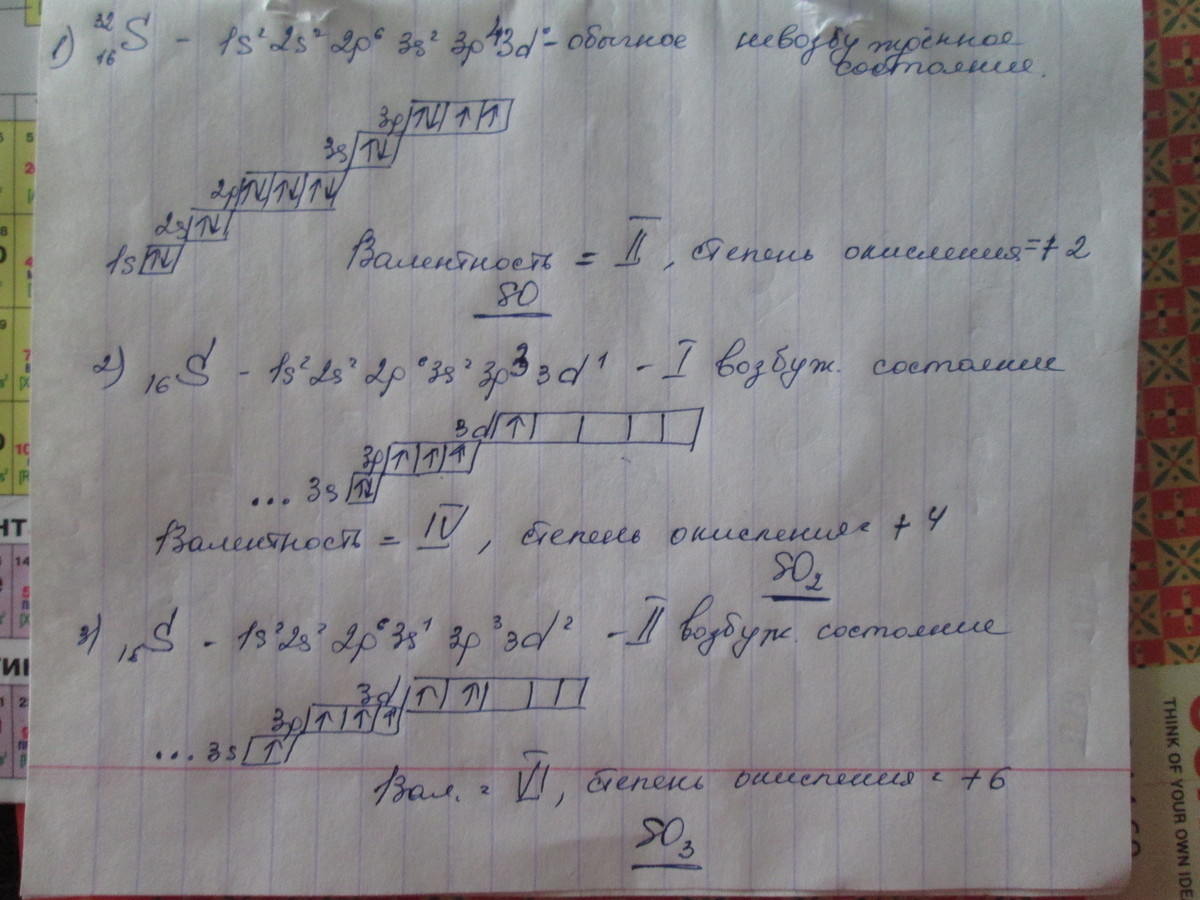 1) ³²₁₆S - 1s² 2s² 2p⁶ 3s² 3p⁴ 3d⁰ - обычное невозбуждённое
состояние.
3p ↑↓ ↑ ↑
3s ↑↓
2p ↑↓ ↑↓ ↑↓
2s ↑↓
1s ↑↓
Валентность = II, степень окисления = +2
SO
2) ₁₆S - 1s² 2s² 2p⁶ 3s² 3p³ 3d¹ - I возбуж. состояние
3d ↑
3p ↑ ↑ ↑
... 3s ↑↓
Валентность = IV, степень окисления = +4
SO₂
3) ₁₆S - 1s² 2s² 2p⁶ 3s¹ 3p³ 3d² - II возбуж. состояние
3d ↑ ↑
3p ↑ ↑ ↑
... 3s ↑
Вал. = VI, степень окисления = +6
SO₃
THINK OF YOUR OWN IDE